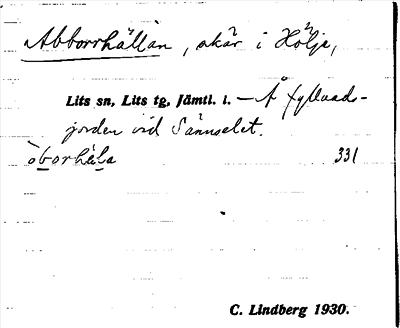 Abborrhällan, skär i Hölje,
Lits sn, Lits tg, Jämtl. l. — Å fyllvads-
jorden vid Sännselet.
òborhäla 331
C. Lindberg 1930.